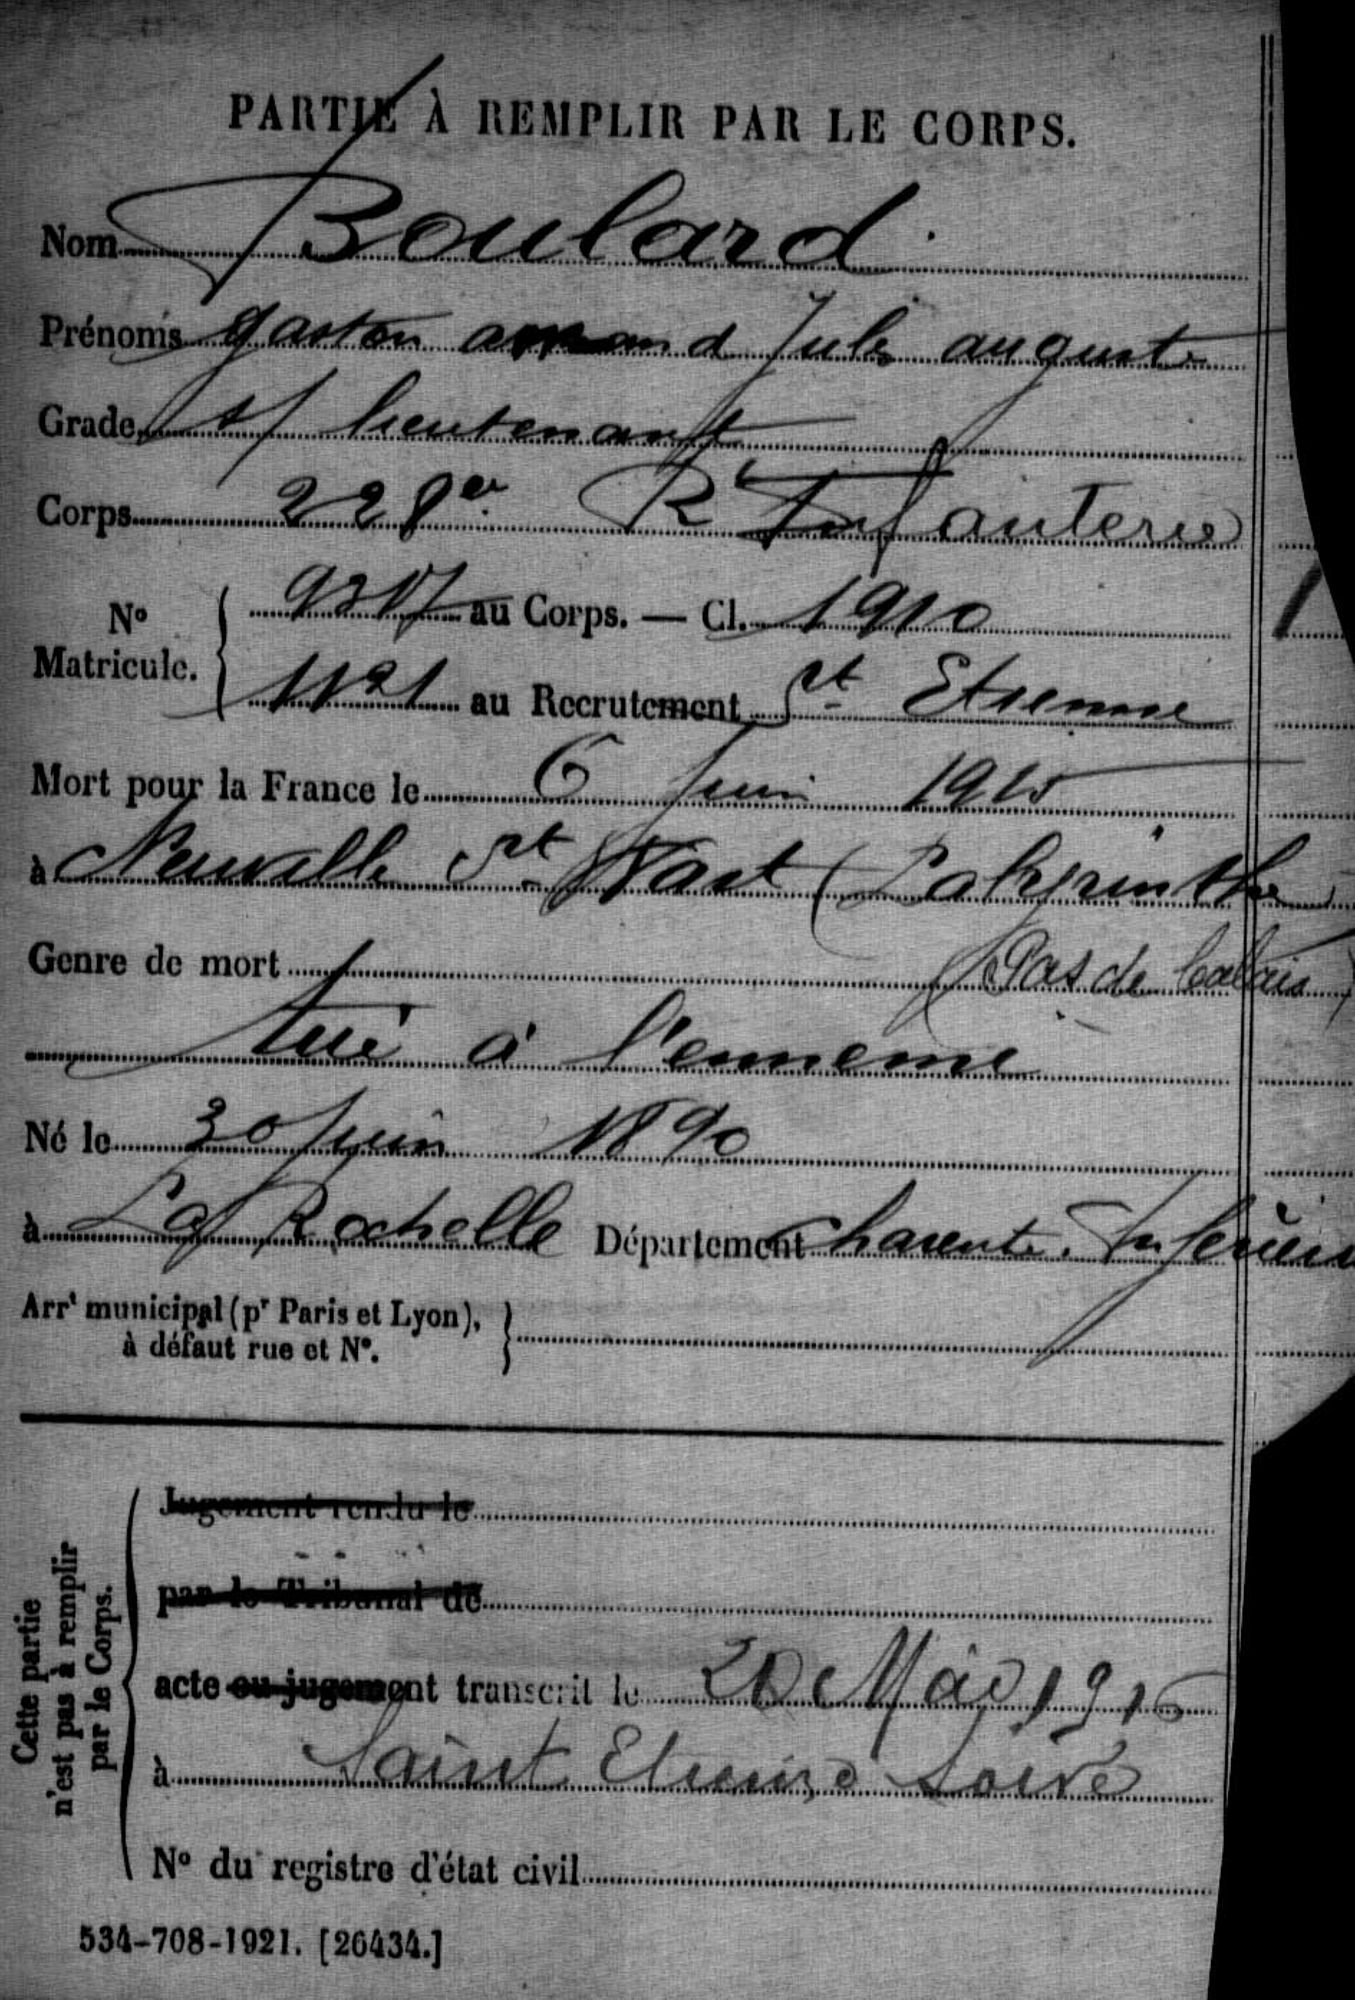 PARTIE À REMPLIR PAR LE CORPS.
Nom Boulard.
Prénoms Gaston Armand Jules Auguste
Grade s/ lieutenant
Corps 228e Rt Infanterie
No Matricule. 9317 au Corps. — Cl. 1910
1121 au Recrutement St Etienne
Mort pour la France le 6 Juin 1915
à Neuville St Vast (Labyrinthe)
Genre de mort (Pas de Calais)
tué à l'ennemi
Né le 30 juin 1890
à La Rochelle Département Charente. Inférieure
Arrt municipal (pr Paris et Lyon),
à défaut rue et No.
Cette partie
n'est pas à remplir
par le Corps.
Jugement rendu le
par le Tribunal de
acte ou jugement transcrit le 20 Mai 1916
à Saint Etienne Loire
No du registre d'état civil
534-708-1921. [26434.]